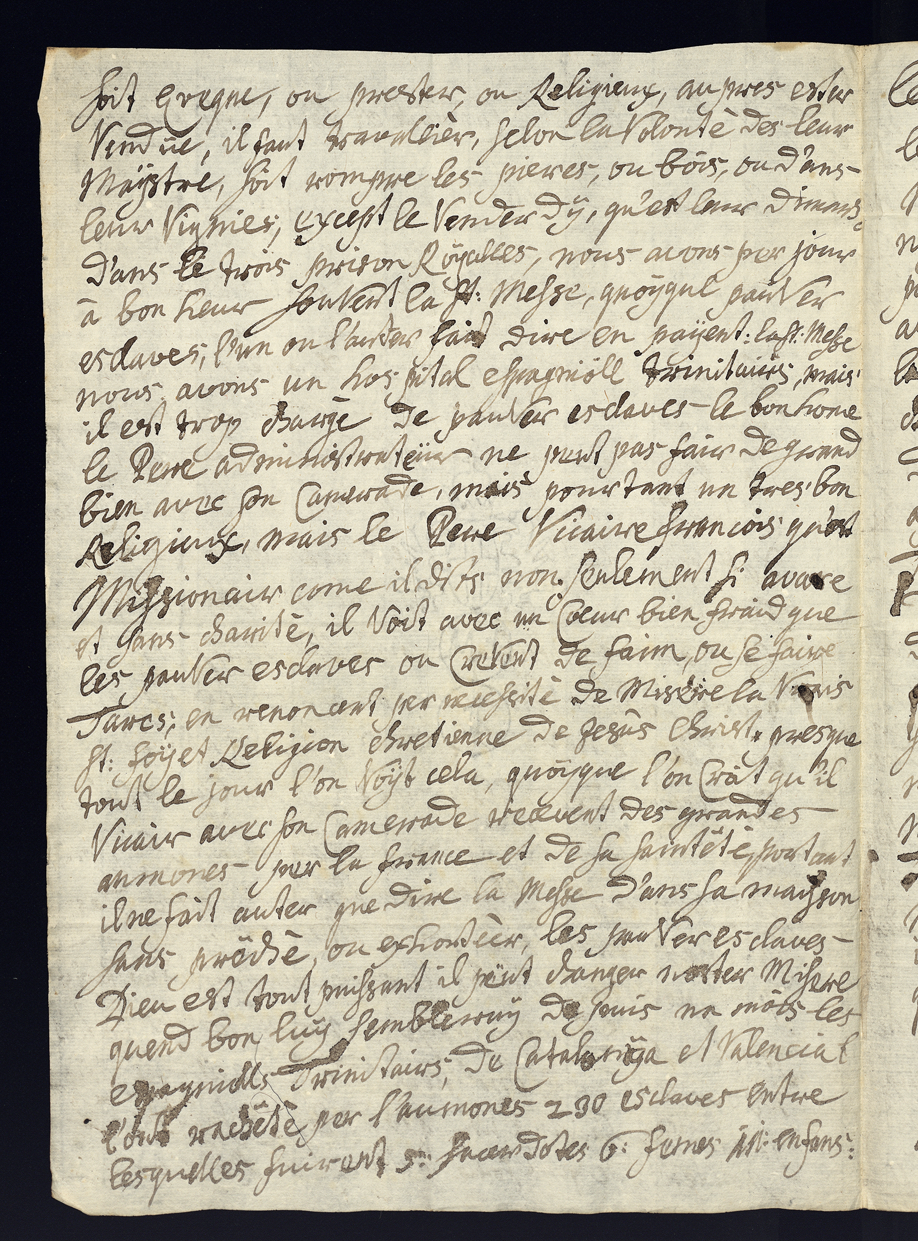 soit Eveque, ou prester, ou Religieux, aupres ester
Vendüe, il faut travallièr, selon la Volontè des leur
Maÿstre, soit rompre les pieres, ou bois, ou d'ans
leur Vignies, except le Vender dÿ, qu'est leur dimans
D'ans le trois prison Roÿalles, nous avons per jour
à bon heur souvent la St: Messe, quoÿque pauver
esclaves, l'un ou l'auter fait dire en paÿent: la St: Messe
nous avons un hospital espagniöll trinitairs, mais
il est trop chargè de pauver esclaves le bon home
le Pere administrateür ne peut pas fair de grand
bien avec son Camerade, mais pourtant un tres bon
Religieux, mais le Pere Vicaire francois qu'est
Missionair come il dits non seulement si avare
et sans charitè, il Voit avec un Coeur bien fräid que
les pauver esclaves ou Crevent de faim, ou se faire
Turcs, en renoncent per necessitè de Misère la Vrais
St: foÿ et Religion chretienne de Jesùs Christ, presque
tout le jour l'on Voÿt cela, quoÿque l'on Crät qu'il
Vicair avec son Camerade recevent des grandes
aumones per la france et de sa saintëtè, portant
il ne fait auter que dire la Messe d'ans sa maison
sans prëchè, ou exhortèr, les pauver esclaves
Dieu est tout puissant il peut changer noster Misere
quend bon luÿ semblera depuis un möis les
espagniolls Trinitairs, de Catalunÿa et Valencia
l'ont rachëtè per l'aumones 230 esclaves entre
lesquelles fuirent 5: Sacerdotes 6: femes enfans: